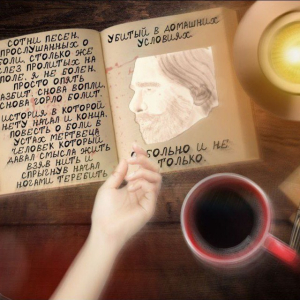 СОТНИ ПЕСЕН,
ПРОСЛУШАННЫХ О
БОЛИ, СТОЛЬКО ЖЕ
СЛЕЗ ПРОЛИТЫХ НА
ПОЛЕ. Я НЕ БОЛЕН,
ПРОСТО ОПЯТЬ
РАЗБИТ. СНОВА ВОПЛИ,
СНОВА ГОРЛО БОЛИТ.
ИСТОРИЯ В КОТОРОЙ
НЕТУ НАЧАЛ И КОНЦА,
ПОВЕСТЬ О БОЛИ В
УСТАХ МЕРТВЕЦА
ЧЕЛОВЕК КОТОРЫЙ
ДАВАЛ СМЫСЛА ЖИТЬ
ВЗЯВ НИТЬ И
СПРЫГНУВ НАЧАЛ
НОГАМИ ТЕРЕБИТЬ
УБИТЫЙ В ДОМАШНИХ
УСЛОВИЯХ
БОЛЬНО И НЕ
ТОЛЬКО.